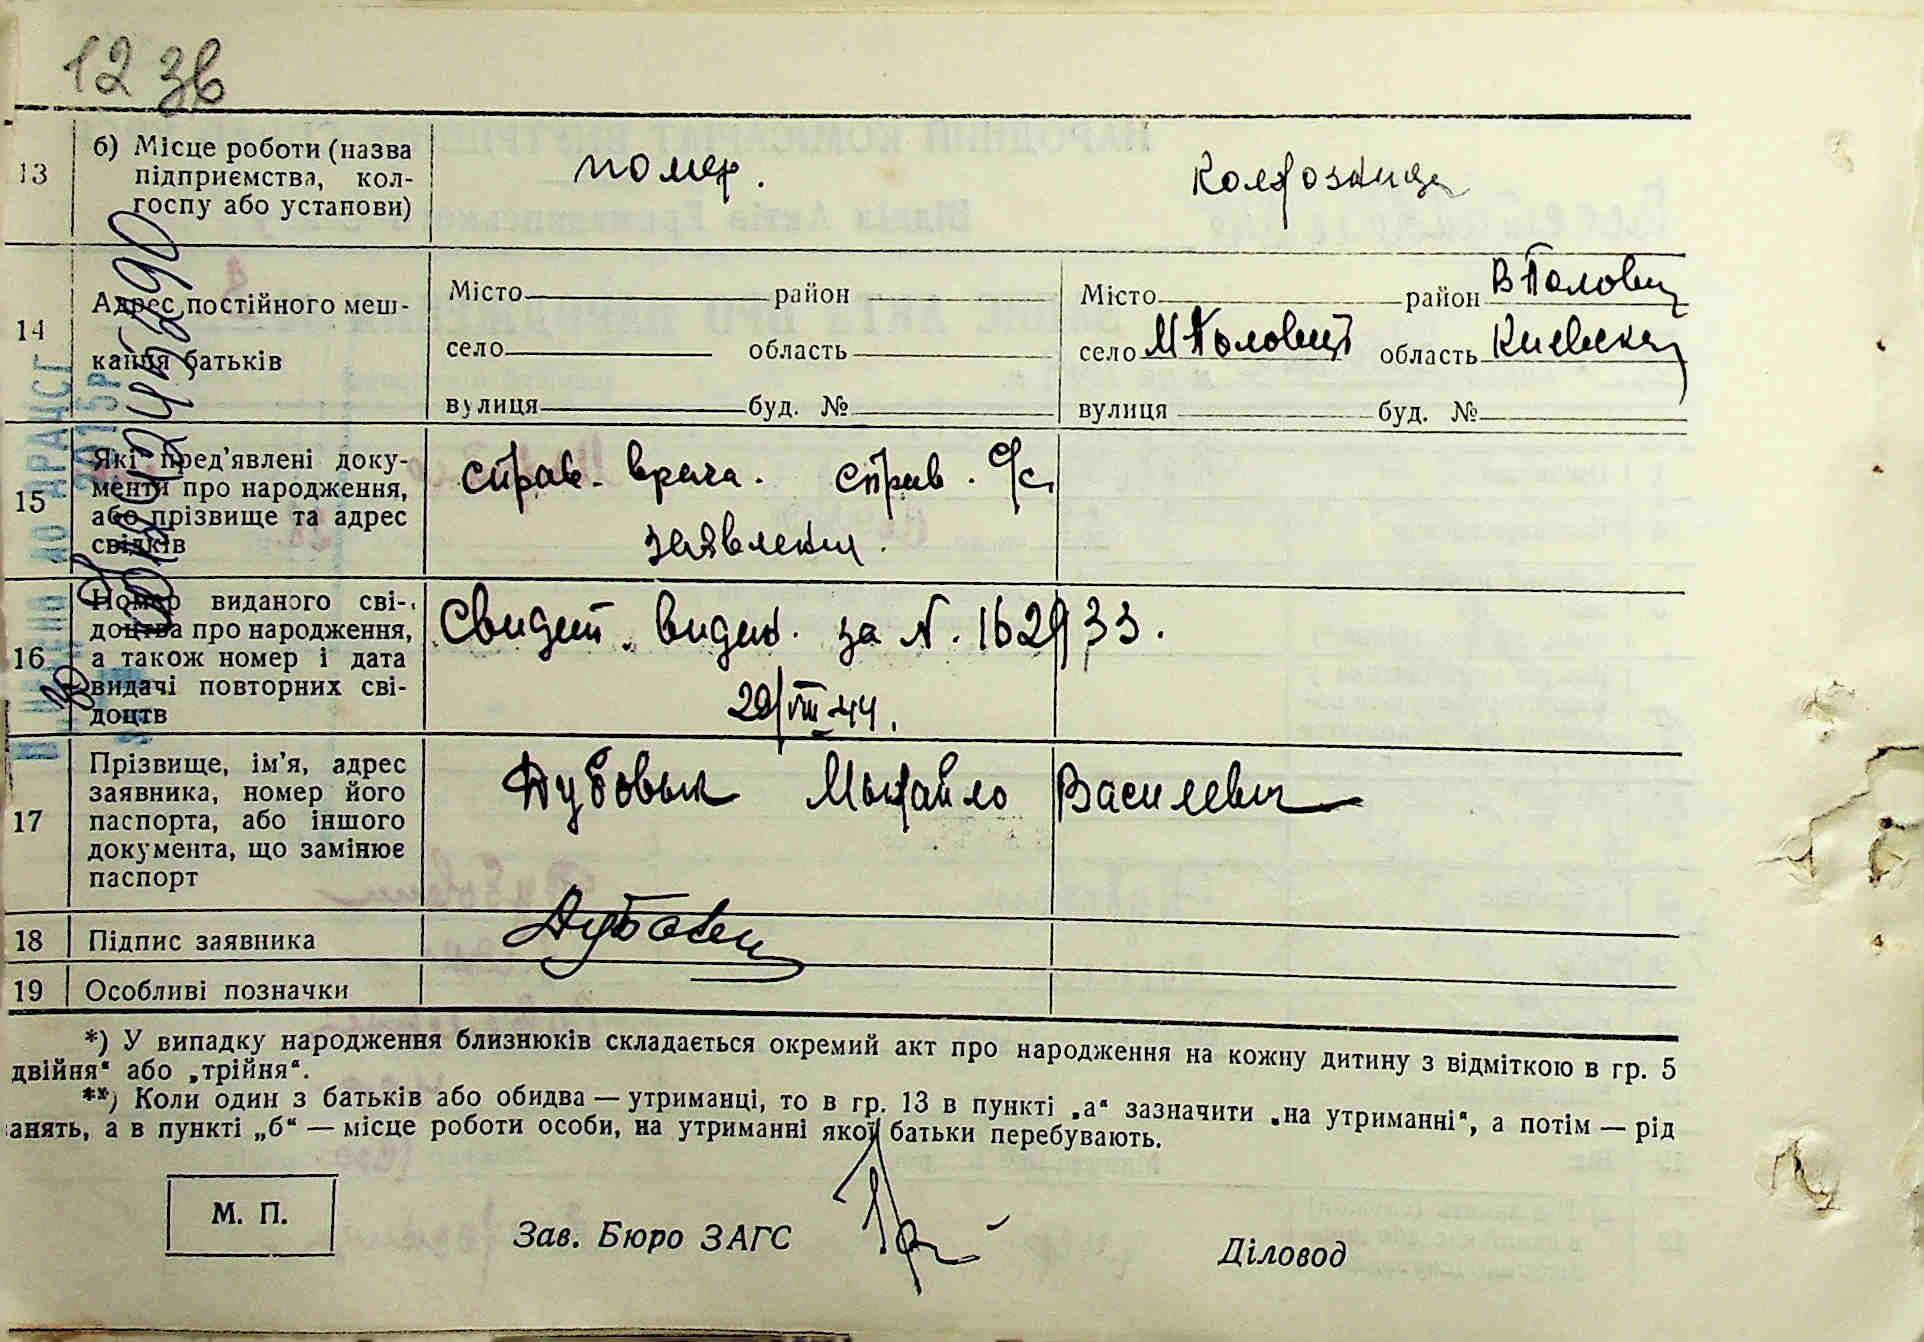 12 зв
13 б) Місце роботи (назва підприємства, кол-
госпу або установи)
помер. колхозница
14 Адрес постійного меш-
кання батьків
Місто район Місто район В Половец
село область село М Половец область Киевская
вулиця буд. № вулиця буд. №
15 Які пред'явлені доку-
менти про народження,
або прізвище та адрес
свідків
справ. врача. справ. с/с.
заявления.
16 Номер виданого сві-
доцтва про народження,
а також номер і дата
видачі повторних сві-
доцтв
Свидет. видано. за N. 162933.
29/VIII 44.
17 Прізвище, ім'я, адрес
заявника, номер його
паспорта, або іншого
документа, що замінює
паспорт
Дубовык Мыхайло Василевич
18 Підпис заявника
19 Особливі позначки
*) У випадку народження близнюків складається окремий акт про народження на кожну дитину з відміткою в гр. 5
двійня“ або „трійня“.
**) Коли один з батьків або обидва — утриманці, то в гр. 13 в пункті „а“ зазначити „на утриманні“, а потім — рід
анять, а в пункті „б“ — місце роботи особи, на утриманні якої батьки перебувають.
М. П.
Зав. Бюро ЗАГС
Діловод